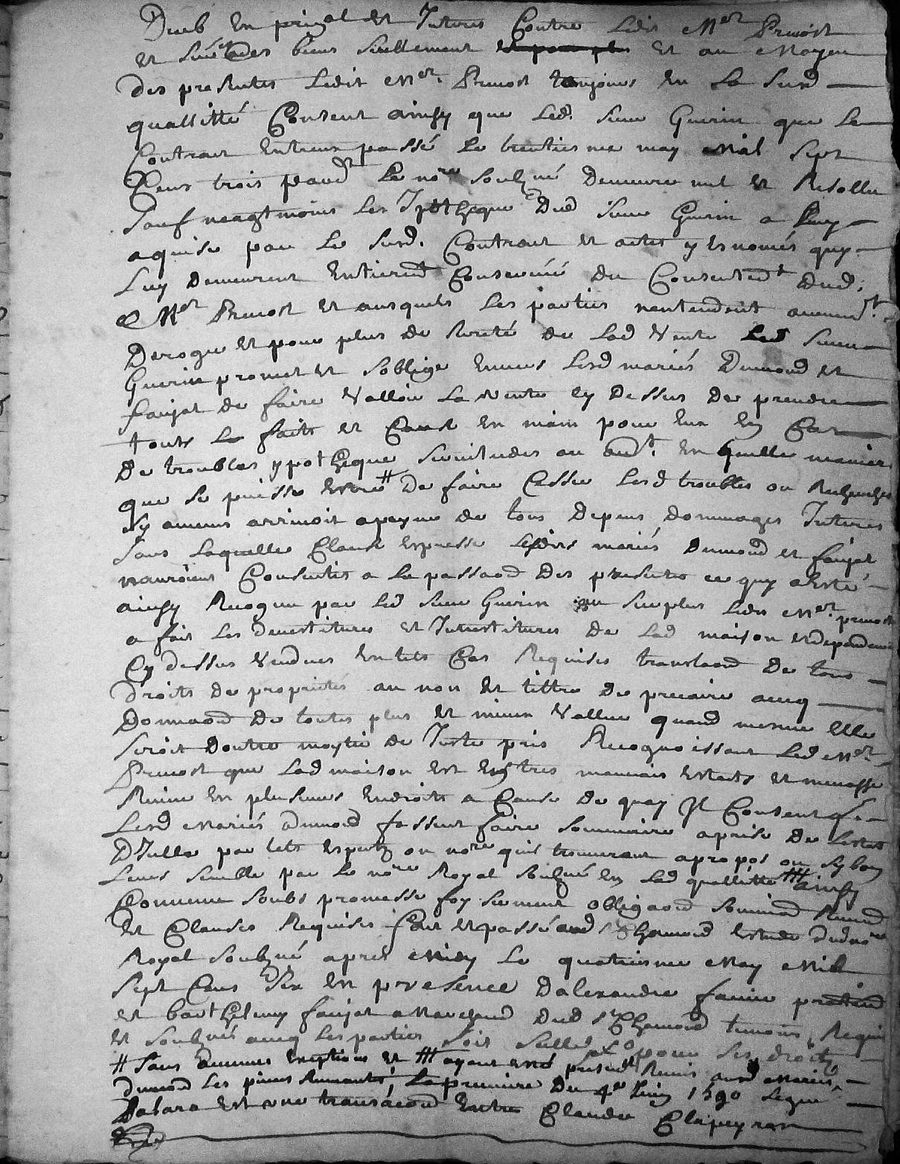 Dueb en prîpal et Interes Contre Ledit Mer Prevost
et sur ses biens seullement et au moyen
des presentes Ledit Mer. Prevost toujours en La susd
quallitté Consent ainsy que Led. sieur Guerin que Le
Contract Entreux passé Le trentiesme may Mil sept
Cens trois pardt Le nore soubzné Demeure nul et Resollu
sauf neagtmoins Les Ypotheque Dud sieur Guerin a Luy
aquise par Le susd. Contract et actes y Enoncés quy
Luy Demeurent Entierent Conservéé Du Consentedt Dud.
Mer Prevost et ausquels Les parties nentendent aucunet
Deroger et pour plus de sureté de Lad Vente Led sieur
Guerin promet et soblige Envers Lesd mariés Dumond et
faujat de faire Valloir La vente cy Dessus de prendre
touts Le faits et Cause en main pour Eux En Cas
De troubles ypotheque servitudes ou aut. En quelle manier
que se puisse Estre # De faire Cesser Lesd troubles ou Recherches
sy aucuns arrivoit apeyne de tous Depens dommages Interes
sans Laquelle Clause Expresse Lesdits mariés Dumond et faujat
nauroient Consentis a La passaon Des presentes ce quy a Esté
ainsy Recognu par Led sieur Guerin au surplus Ledit Mer. prevost
a fait Les devestitures et Investitures De Lad maison et dependences
Cy dessus Vendues En tels Cas Requises translaon De tous
droits de proprietés au nom et tittre de precaire avecq
Donnaon De toutes plus et mieux Vallue quand mesme Elle
seroit Doutre moytié de Juste prix Recognoissant Led Mer.
Prevost que Lad maison est En tres mauvais Estats et menasse
Ruine En plusieurs Endroits a Cause De quoy Il Consent q
Lesd Mariés Dumond fassent faire sommaire aprise De Lestat
Dicelle par tels Experts ou nore quils trouveront apropos ou sy bon
Leurs semble par Le nore Royal soubzné En Lad quallitté ## ainsy
Convenu soubs promesse foy serment obligaon soumion Renond
et Clauses Requises fait et passé aud St Chamond Estude dud nore
Royal soubzné apres Midy Le quatriesme May Mil
sept Cens Dix en presence Dalexandre favier
et barthelemy faujat Marchand dud St Chamond temoins Requis
et soubznés avecq Les parties soit sellé pour ses droits
# sans aucunes Exeptions et ## ayant esté present Remis aud Mariés
dumond Les pieces suivantes, La premiere Du 4e Juin 1590 signé
Dalara Est une transacaon Entre Claude Clapeyron